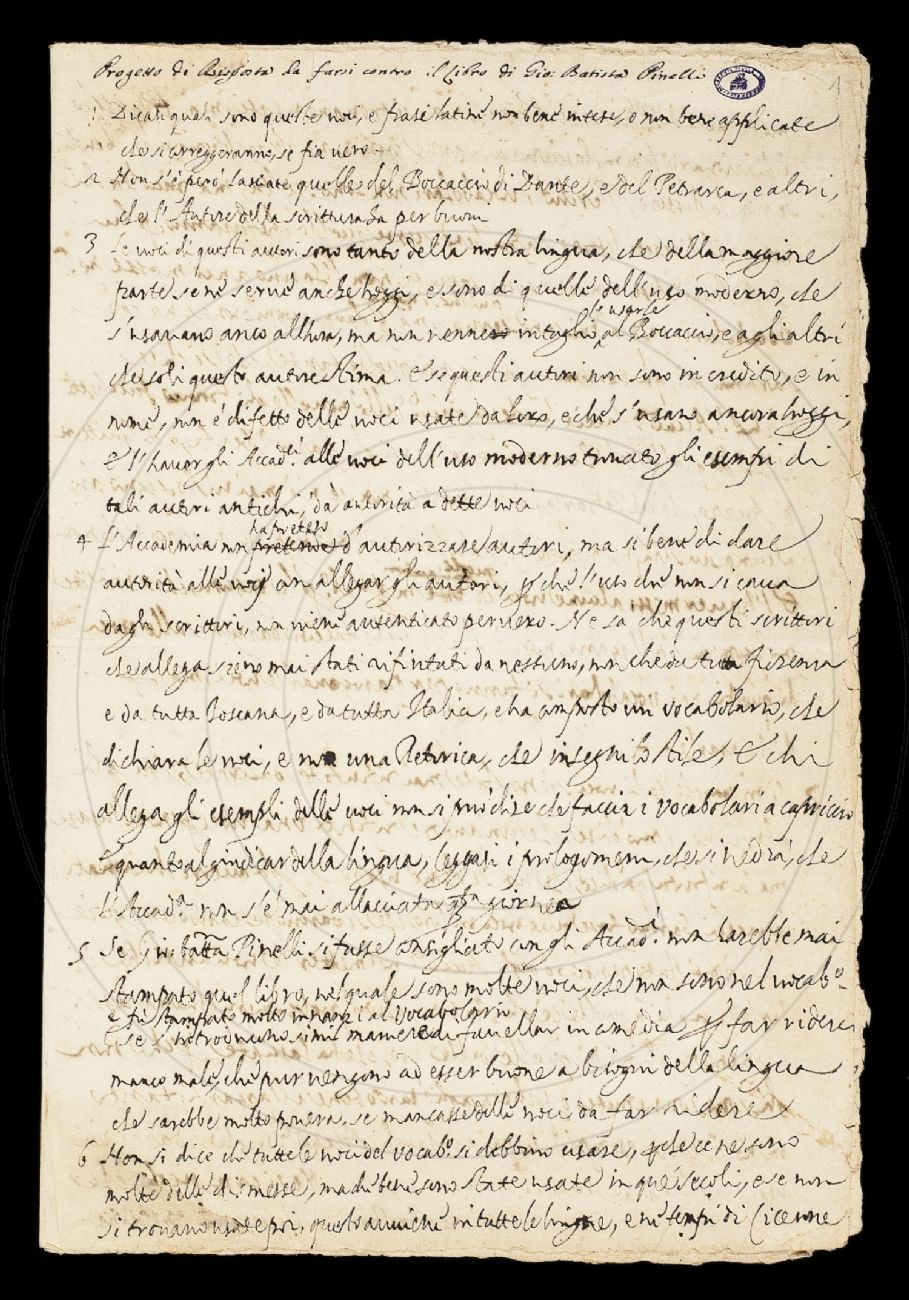 Progetto di Risposta da farsi contro il Libro di Gio: Batista Pinelli
1
1 Dicasi quali sono queste voci, e frasi latine non bene intese, o non bene applicate
che si correggeranno, se fia vero
2 Non s'è però lasciate quelle del Boccaccio di Dante, e del Petrarca, e altri,
che l'Autore della scrittura ha per buoni
3 Le voci di questi autori sono tanto della nostra lingua, che della maggiore
parte se ne serve anche hoggi, e sono di quelle dell'uso moderno, che
s'usavano anco allhora, ma non venne in taglio l'usarle al Boccaccio, e agli altri
che soli questo autore stima. E se questi autori non sono in credito, e in
nome, non è difetto delle voci usate da loro, e che s'usano ancora hoggi,
E l'haver gli Accad.ci alle voci dell'uso moderno trovato gli esempi di
tali autori antichi, dà autorità a dette voci
4 L'Accademia non ha preteso d'autorizzare autori, ma sì bene di dare
autorità alle voci con allegar gli autori, perche l'uso che non si cava
dagli scrittori, non viene autenticato per vero. Ne sa che questi scrittori
che allega sieno mai stati rifiutati da nessuno, non che da tutta Firenza
e da tutta Toscana, e da tutta Italia, e ha composto un vocabolario, che
dichiara le voci, e non una Retorica, che insegni lo stile, E chi
allega gli esempli delle voci non si può dire che faccia i vocabolari a capriccio
E quanto al giudicar della lingua, leggasi i prologomeni, che si vedrà, che
l'Accad.a non s'è mai allacciata questa giornea
5 Se Gio: batta Pinelli si fusse consigliato con gli Accad.ci non harebbe mai
stampato quel libro, nel quale sono molte voci, che non sono nel vocab.o
e fu stampato molto innanzi al Vocabolario
se s'introducono simil maniere di favellar in comedia per far ridere
manco male, che pur vengono ad esser buone a bisogni della lingua
che sarebbe molto povera, se mancasse delle voci da far ridere
6 Non si dice che tutte le voci del vocab.o si debbino usare, perche ce ne sono
molte delle dismesse, ma che bene sono state usate in que' secoli, e se non
si trovano usate poi, questo avviene in tutte le lingue, e ne' tempi di Cicerone